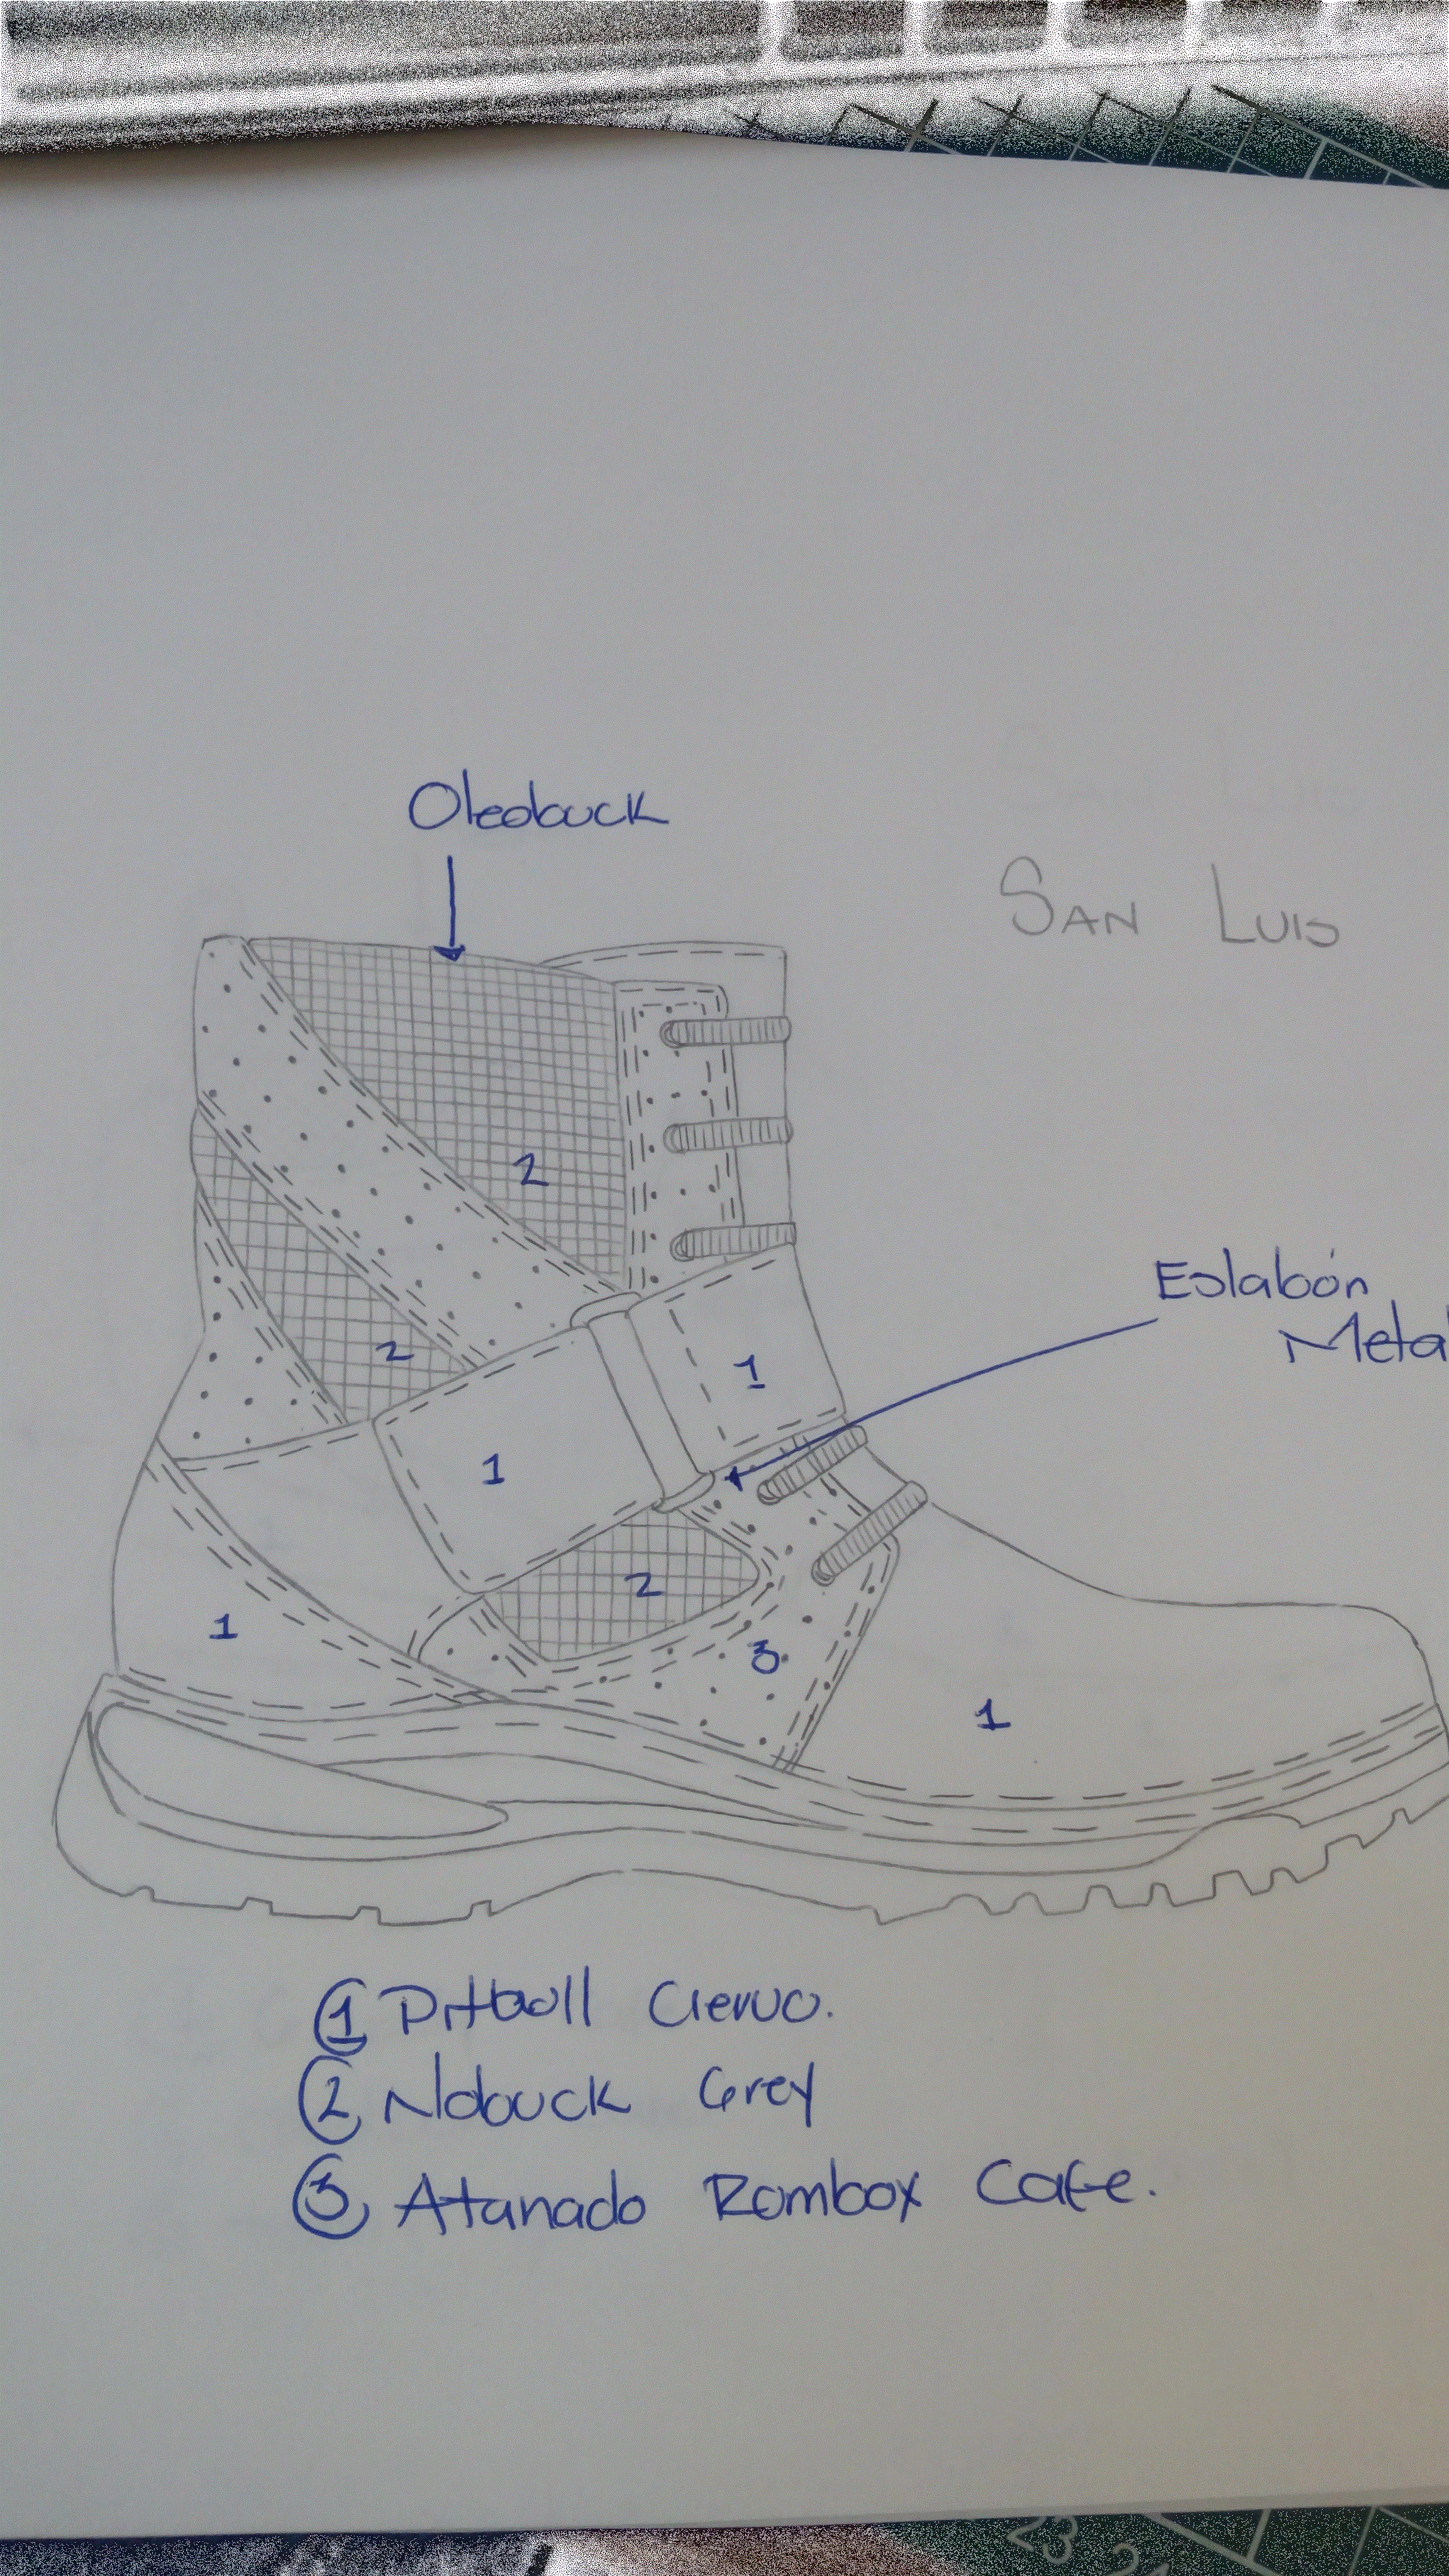 Oleobuck
SAN LUIS
2
2
1
1
Eslabón
Metal
2
1
3
1
① Pitbull Ciervo.
② Nobuck Grey
③ Atanado Rombox Cafe.
23
24